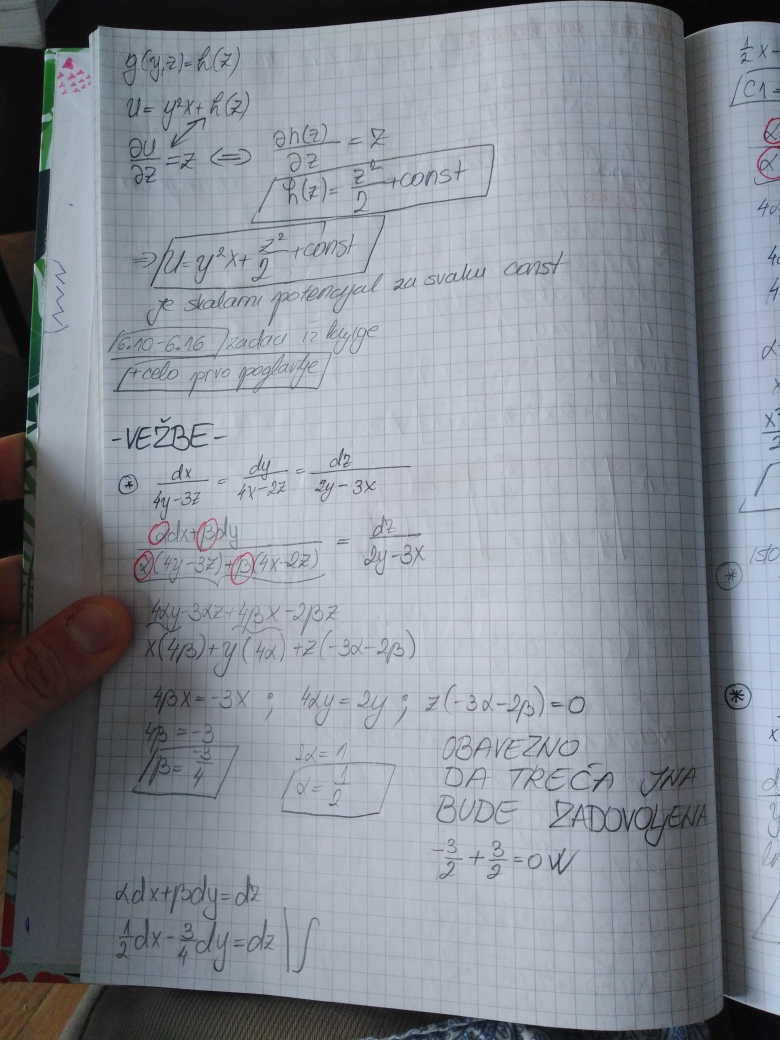 g(y,z)=h(z)
U= y²x+h(z)
∂U/∂z=z <=> ∂h(z)/∂z = z
h(z)= z²/2 +const
=> U=y²x+z²/2+const
je skalarni potencijal za svaku const
6.10-6.16 zadaci iz knjige
+celo prvo poglavlje
-VEŽBE-
* dx/4y-3z = dy/4x-2z = dz/2y-3x
αdx+βdy/α(4y-3z)+β(4x-2z) = dz/2y-3x
4αy-3αz+4βx-2βz
x(4β)+y(4α)+z(-3α-2β)
4βx=-3x ; 4αy=2y ; z(-3α-2β)=0
4β=-3
β= -3/4
2α=1
α= 1/2
OBAVEZNO
DA TREĆA JNA
BUDE ZADOVOLJENA
-3/2 + 3/2 =0 √
αdx+βdy=dz
1/2dx-3/4dy=dz |∫
1/2 x-
C1=
α
4α
4
α
x
isto
*
*
x